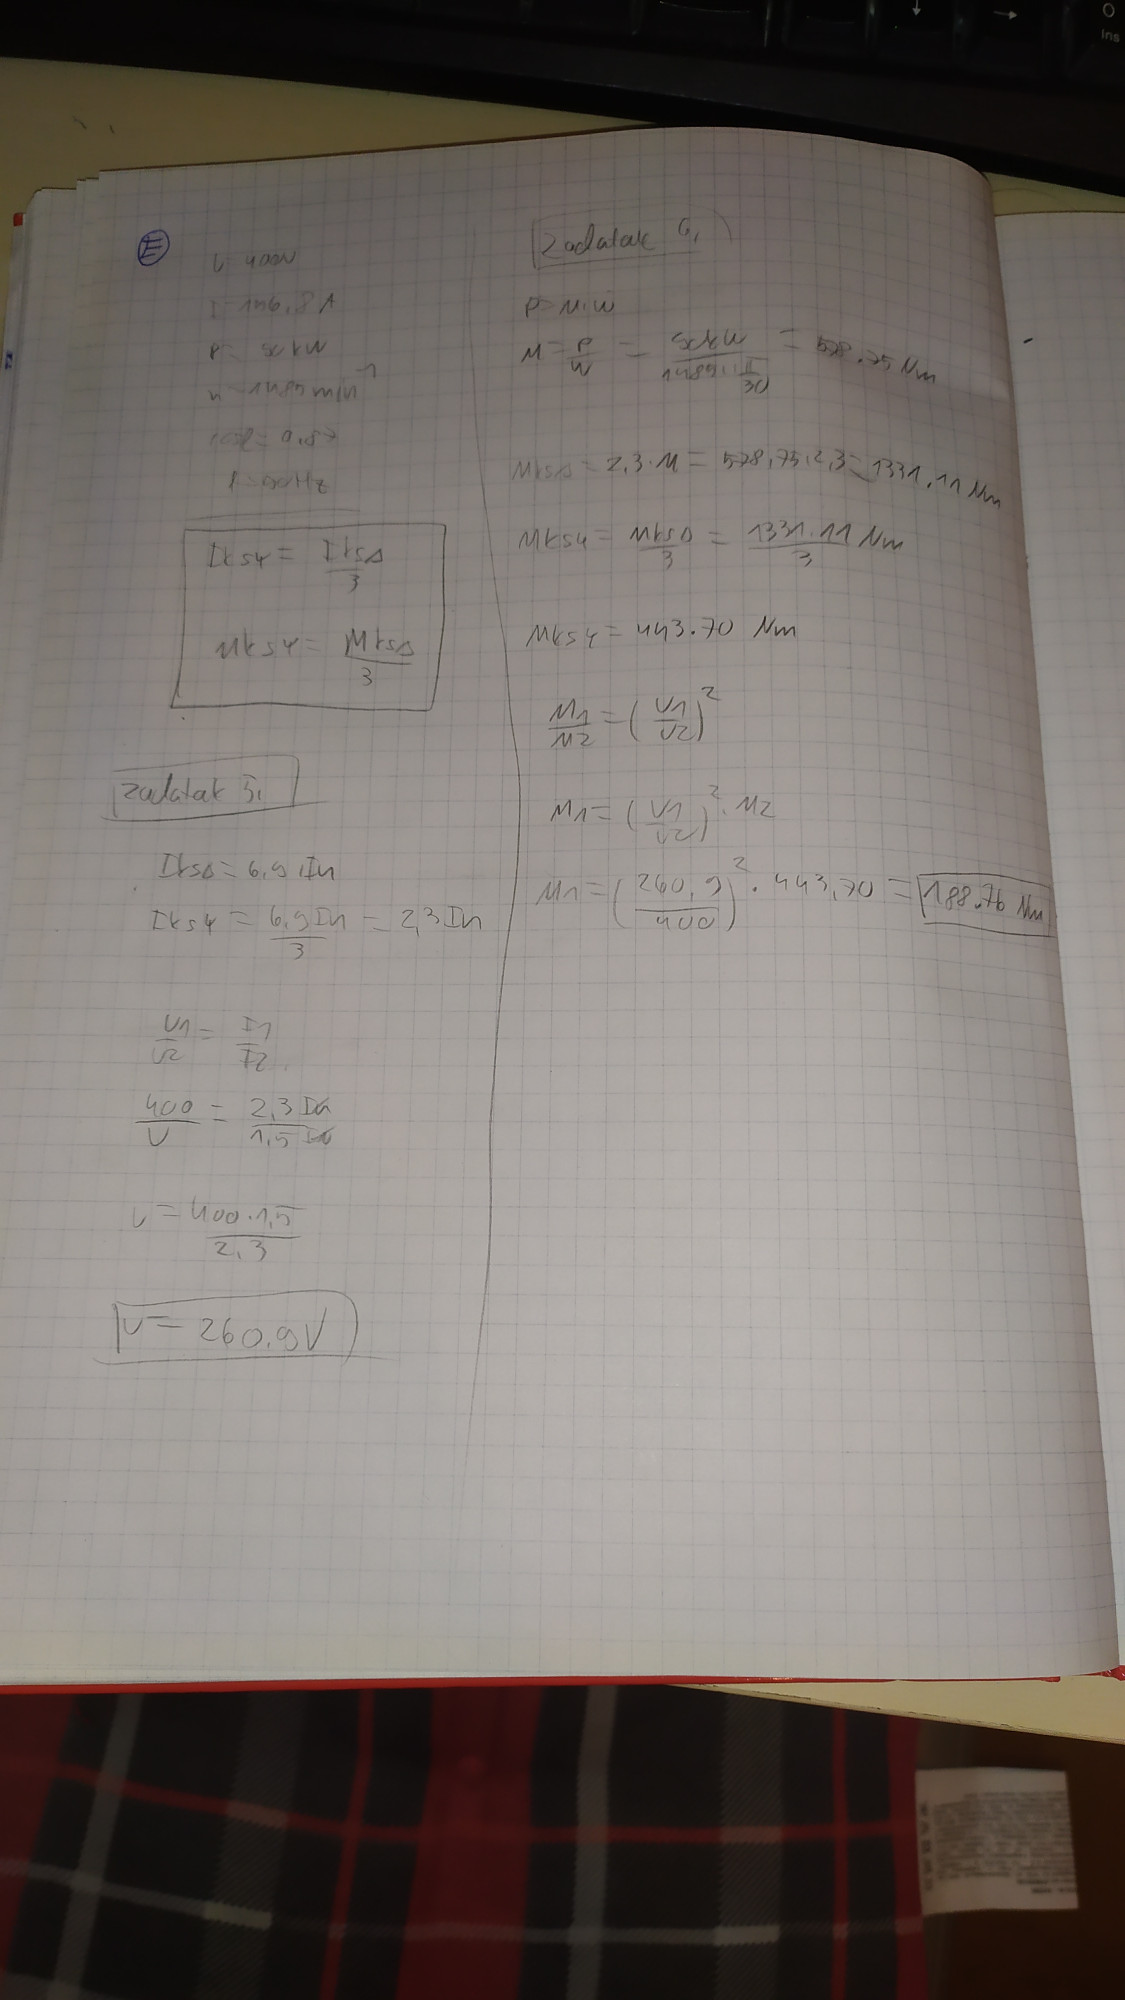 E
U 400V
I = 146,8 A
P = 90kW
n = 1485 min⁻¹
cosφ = 0.87
f = 50Hz
IksY = IksΔ/3
MksY = MksΔ/3
Zadatak 5.
IksΔ = 6,9 In
IksY = 6,9In/3 = 2,3In
U1/U2 = I1/I2
400/U = 2,3In/1,5In
U = 400·1,5/2,3
U = 260.9V
Zadatak 6.
P = M·W
M = P/W = 90kW/(1485·π/30) = 578.75 Nm
MksΔ = 2,3·M = 578,75·2,3 = 1331.11 Nm
MksY = MksΔ/3 = 1331.11/3 Nm
MksY = 443.70 Nm
M1/M2 = (U1/U2)²
M1 = (U1/U2)²·M2
M1 = (260,9/400)²·443,70 = 188.76 Nm
Ins